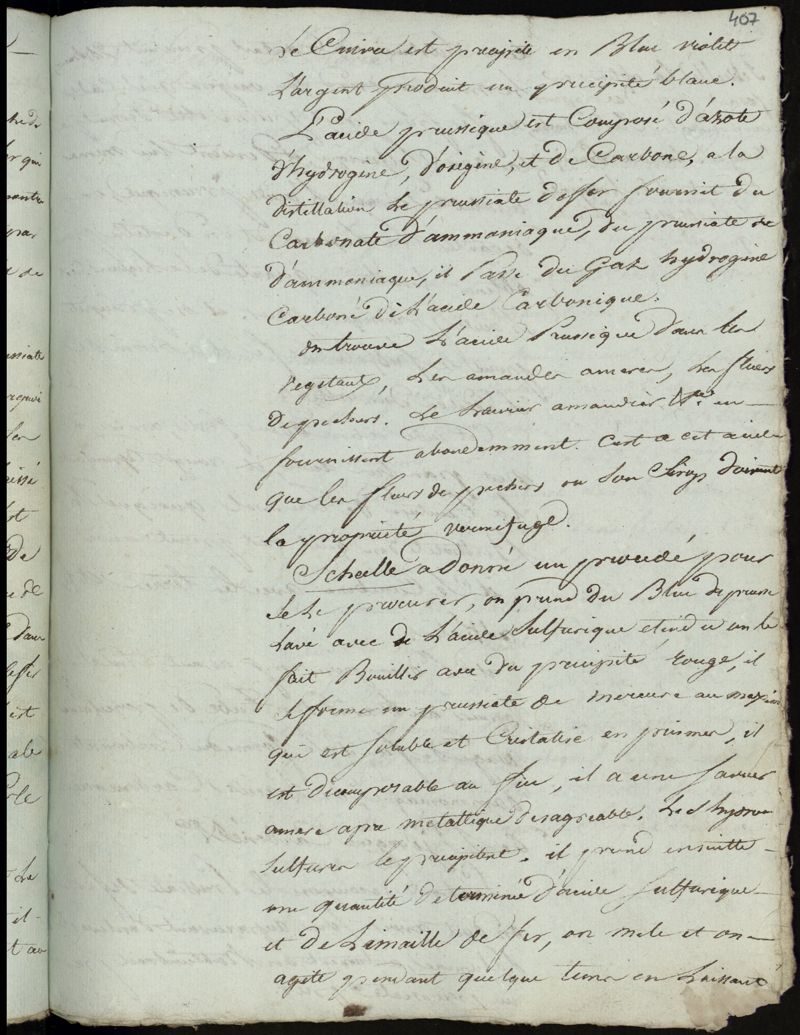 407
Le Cuivre est precipite en Bleu violet
L'argent produit un precipité blanc.
L'acide prussique est Composé d'azote
d'hydrogene, d'oxigene, et de Carbone, a la
distillation le prussiate de fer fournit du
Carbonate d'ammoniaque, du prussiate
d'ammoniaque, il Passe du Gaz hydrogene
Carboné de L'acide Carbonique.
on trouve L'acide Prussique dans les
vegetaux, Les amandes ameres, les fleurs
de pechers. Le Laurier amandier en
fournissent abondemment. C'est a cet acide
que les fleurs de pechers ou son Sirop doivent
la propriété vermifuge.
Scheelle a donné un procedé pour
se le procurer, on prend du Bleu de prusse
lavé avec de L'acide Sulfurique etendu on le
fait Bouillir avec du precipité rouge, il
se forme un prussiate de mercure au
qui est soluble et Cristalise en prismes, il
est decomposable au feu, il a une saveur
amere apre metallique desagreable. Les hydro
sulfures le precipitent. il prend ensuitte
une quantité determinée d'acide Sulfurique
et de Limaille de fer, on mele et on
agite pendant quelque tems en Laissant